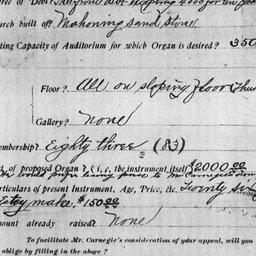 of Debt?
urch built of? Mahoning Sand Stone
ting Capacity of Auditorium for which Organ is desired? 350
Floor? All on sloping Floor thus
Gallery? None
embership? Eighty three (83)
of proposed Organ? (i. e. the instrument itself) $2000.00
would prefer leaving price to Mr Carnegie's
articulars of present Instrument, Age, Price, &c. Twenty six
Estey make, $150.00
mount already raised? None
To facilitate Mr. Carnegie's consideration of your appeal, will you
oblige by filling in the above?